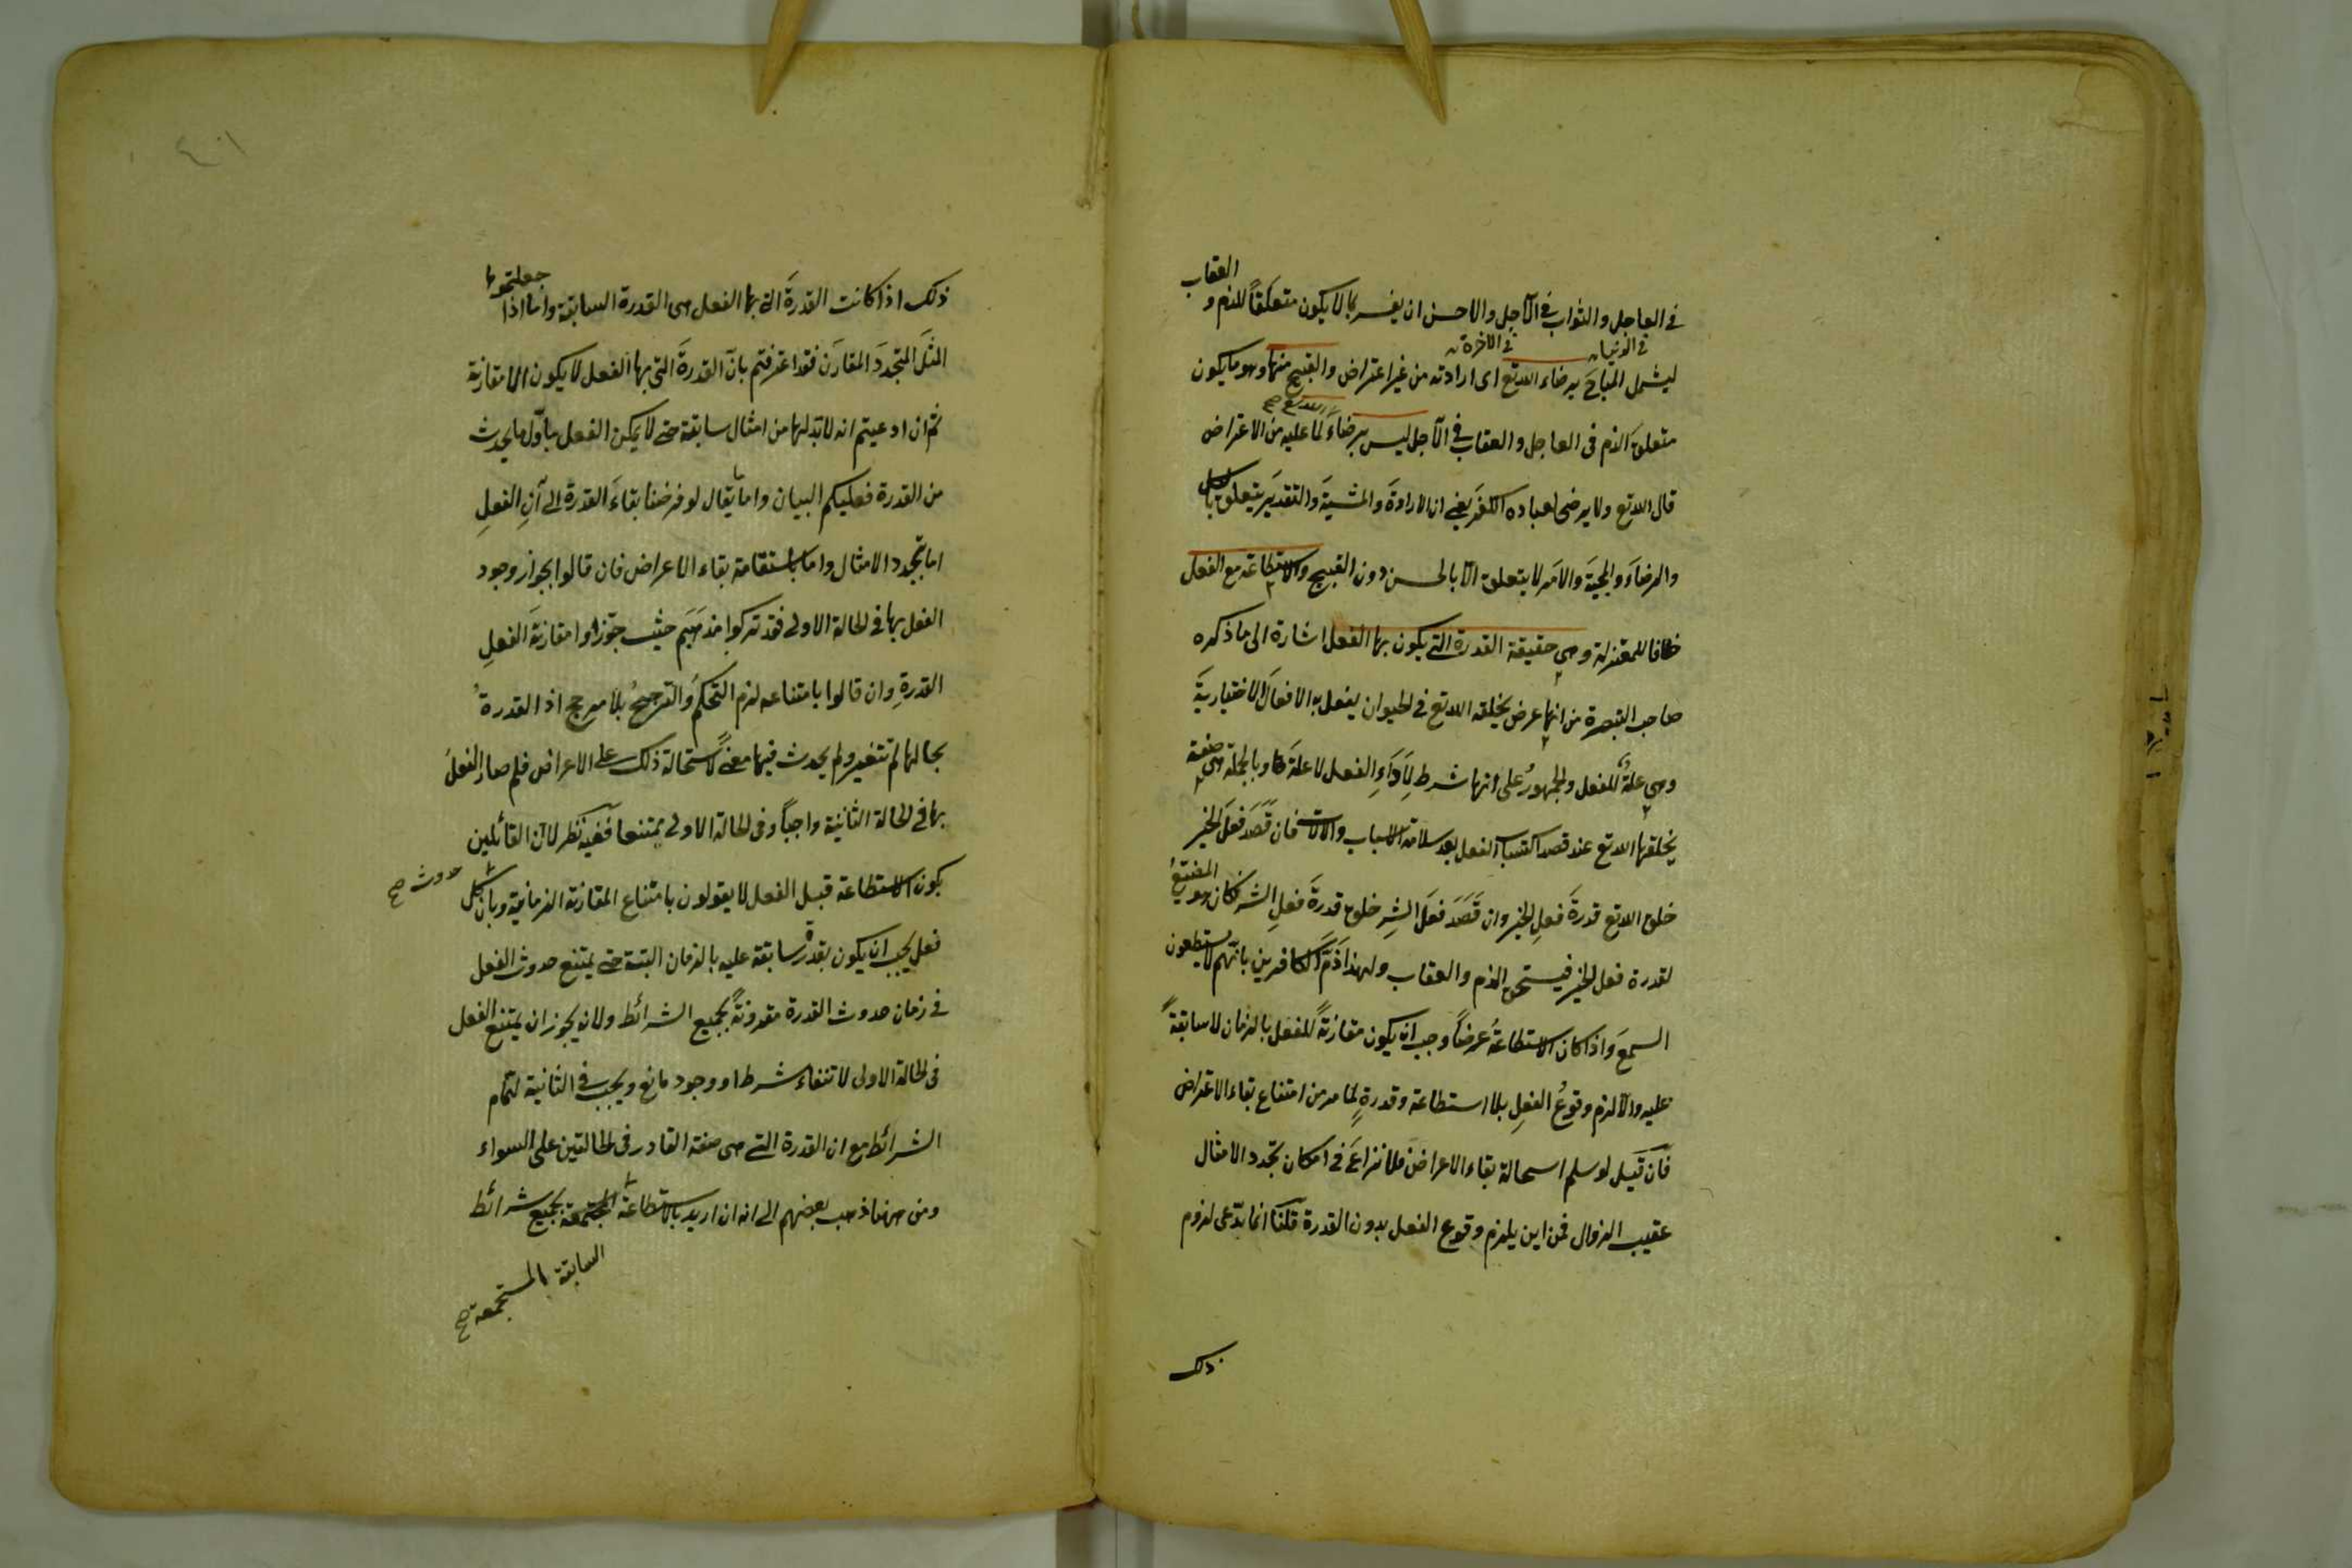 في العاجل والثواب في الآجل والاحسن ان يفسر بما لا يكون متعلقاً للذم و العقاب
في الدنيا
في الآخرة
ليشمل المباحَ برضاء الله تع اى ارادته من غير اعتراض والقبيح منها وهو ما يكون
متعلق الذم فى العاجل والعقاب في الآجل ليس برضاءَ لما عليه من الاعتراض
قال الله تع ولا يرضى لعباده الكفر يعني ان الارادةَ والمشيةَ والتقديرَ يتعلق بالكل
والرضاءَ والمحبةَ والامَر لا يتعلق الا بالحسن دون القبيح والاستطاعة مع الفعل
خلافا للمعتزلة وهي حقيقة القدرة التي يكون بها الفعل اشارة الى ما ذكره
صاحب التبصرة من انها عرض يخلقه الله تع في الحيوان يفعل به الافعالَ الاختياريةَ
وهي علةٌ للفعل والجمهورُ على انها شرط لِاَدَاءِ الفعل لا علة وبالجملة هى صفة
يخلقها الله تع عند قصد اكتساب الفعل بعد سلامة الاسباب والآلات فان قَصَدَ فعلَ الخير
خلق الله تع قدرةَ فعلِ الخير وان قَصَدَ فعلَ الشرِ خلق قدرةَ فعلِ الشر فكان هو المضيّعُ
لقدرة فعل الخير فيستحق الذم والعقاب ولهذا ذَمَّ الكافرين بانهم لا يستطيعون
السمعَ واذا كان الاستطاعةُ عرضاً وجب ان يكون مقارنةً للفعل بالزمان لا سابقةً
عليه والا لزم وقوعُ الفعلِ بلا استطاعة وقدرةٍ لما مر من امتناع بقاء الاعراض
فان قيل لو سلم استحالة بقاء الاعراض فلا نزاعَ في امكان تجدد الامثال
عقيب الزوال فمن اين يلزم وقوع الفعل بدون القدرة قلنا انما ندّعى لزوم
ذلك
ذلك اذا كانت القدرةَ التي بها الفعل هى القدرة السابقة واما اذا جعلتموها
المثلَ المتجددَ المقارنَ فقد اعترفتم بان القدرةَ التى بها الفعل لا يكون الا مقارنة
ثم ان ادعيتم انه لا بد لها من امثال سابقة حتى لا يمكن الفعل باول ما يحدث
من القدرة فعليكم البيان واما ما يقال لو فرضنا بقاءَ القدرة الى آنِ الفعلِ
اما بتجدد الامثال واما باستقامة بقاء الاعراض فان قالوا بجواز وجود
الفعل بها فى الحالة الاولى فقد تركوا مذهبَهم حيث جوّزوا مقارنةَ الفعلِ
القدرةِ وان قالوا بامتناعه لزم التحكمُ والترجيحُ بلا مرجح اذ القدرةُ
بحالها لم تتغير ولم يحدث فيها معنىً لاستحالة ذلك على الاعراض فلم صار الفعلُ
بها في الحالة الثانية واجباً وفى الحالة الاولى ممتنعا ففيه نظر لان القائلين
بكون الاستطاعة قبل الفعل لا يقولون بامتناع المقارنة الزمانية وبان كل
حدوث صح
فعل يجب ان يكون بقدرة سابقة عليه بالزمان البتة حتى يمتنع حدوث الفعل
في زمان حدوث القدرة مقرونةً بجميع الشرائط ولانه يجوز ان يمتنع الفعل
فى الحالة الاولى لانتفاء شرط او وجود مانع ويجب في الثانية لتمام
الشرائط مع ان القدرة التى هى صفة القادر فى الحالتين على السواء
ومن ههنا ذهب بعضهم الى انه ان اريد بالاستطاعة المجتمعة بجميع شرائط
السابقة المستجمعة صح